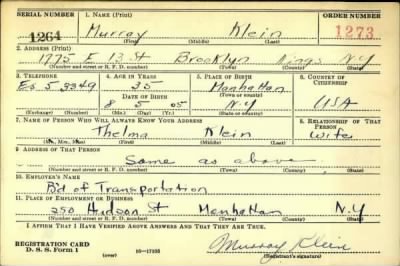 SERIAL NUMBER 1. NAME (Print) ORDER NUMBER
1264 Murray Klein 1273
(First) (Middle) (Last)
2. ADDRESS (Print)
1775 E 13 St Brooklyn Kings N.Y
(Number and street or R. F. D. number) (Town) (County) (State)
3. TELEPHONE 4. AGE IN YEARS 5. PLACE OF BIRTH 6. COUNTRY OF CITIZENSHIP
Es 5 8849 35 Manhattan
DATE OF BIRTH (Town or county)
8 5 05 N.Y USA
(Exchange) (Number) (Mo.) (Day) (Yr.) (State or country)
7. NAME OF PERSON WHO WILL ALWAYS KNOW YOUR ADDRESS 8. RELATIONSHIP OF THAT PERSON
Thelma Klein Wife
(Mr., Mrs., Miss) (First) (Middle) (Last)
9. ADDRESS OF THAT PERSON
Same as above
(Number and street or R. F. D. number) (Town) (County) (State)
10. EMPLOYER'S NAME
Bd of Transportation
11. PLACE OF EMPLOYMENT OR BUSINESS
250 Hudson St Manhattan N.Y
(Number and street or R. F. D. number) (Town) (County) (State)
I AFFIRM THAT I HAVE VERIFIED ABOVE ANSWERS AND THAT THEY ARE TRUE.
REGISTRATION CARD
D. S. S. Form 1 (over) 16-17105 Murray Klein
(Registrant's signature)